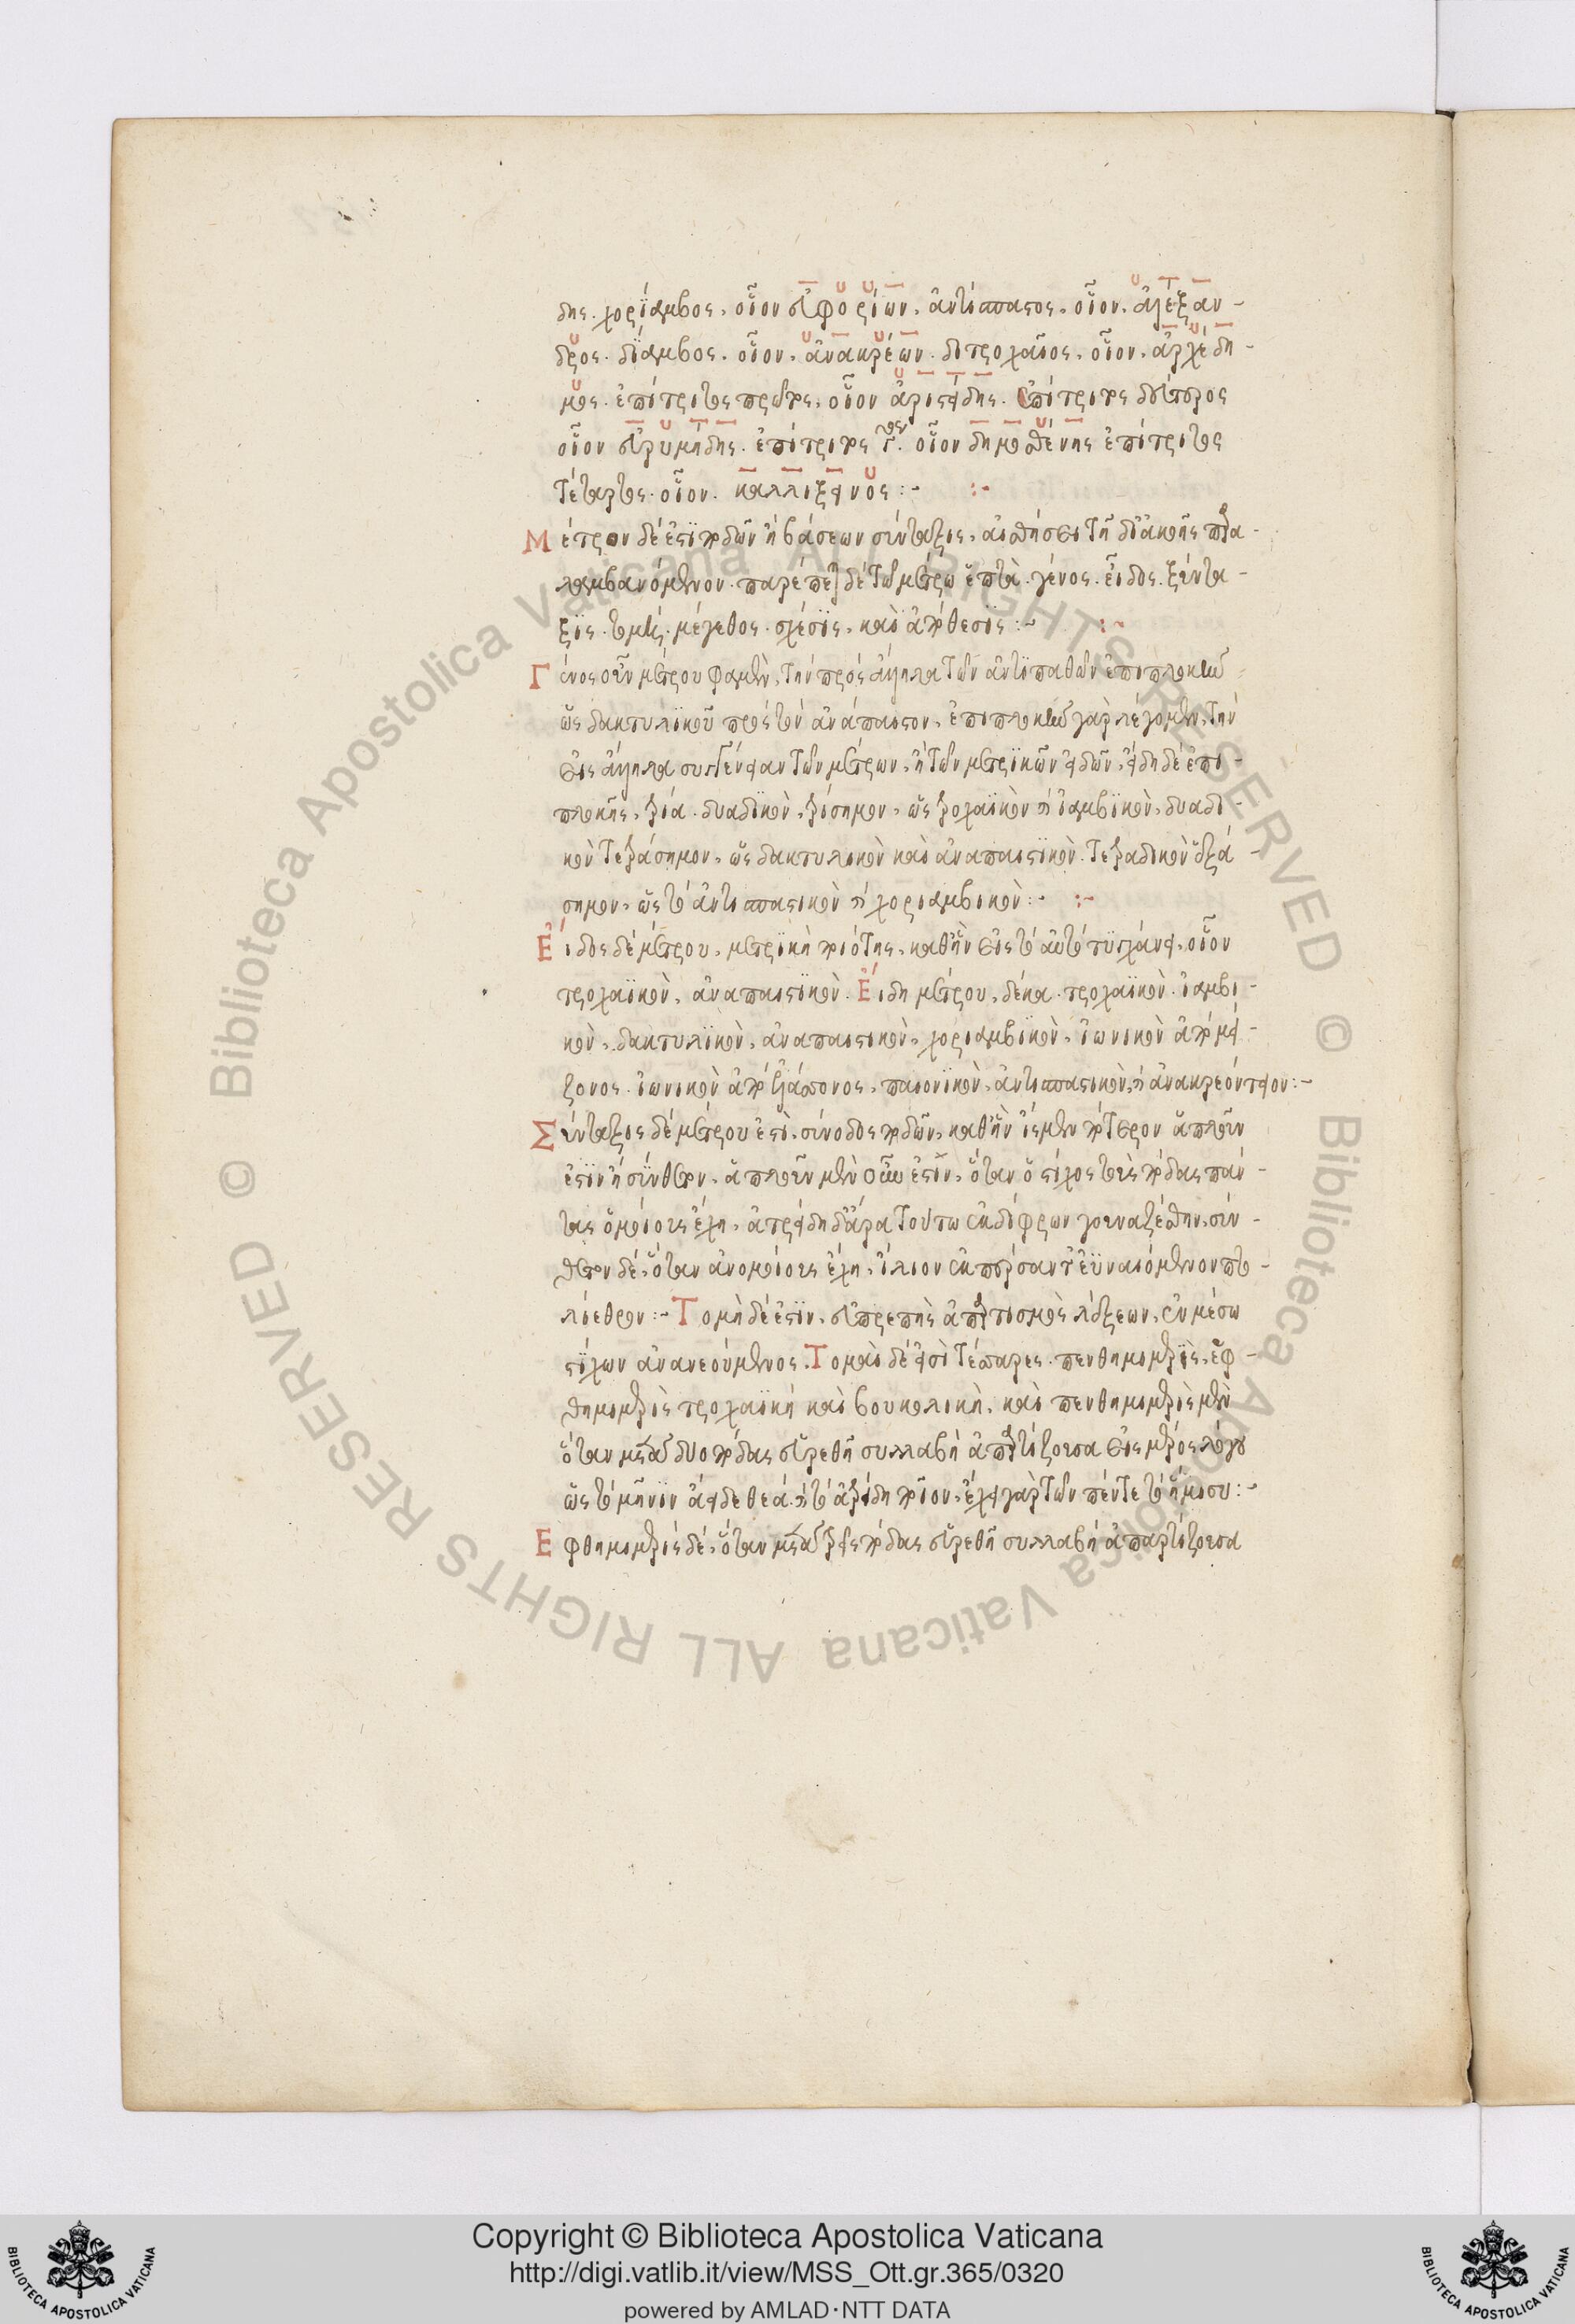 δης. χορίαμβος. οἷον εὐφορίων. ἀντίσπαστος. οἷον. ἀλέξαν-
δρος. διίαμβος. οἷον. ἀνακρέων. διτρόχαιος. οἷον. ἀρχέδη-
μος. ἐπίτριτος πρῶτος. οἷον ἀριστείδης. ἐπίτριτος δεύτερος
οἷον εὐρυμήδης. ἐπίτριτος γ´τος. οἷον δημοσθένης ἐπίτριτος
τέταρτος. οἷον. καλλίξεινος:-
Μέτρον δέ ἐστι ποδῶν ἢ βάσεων σύνταξις. αἰσθήσει τῇ δι' ἀκοῆς παρα-
λαμβανόμενον. παρέπεται δὲ τῷ μέτρῳ ἑπτὰ. γένος. εἶδος. σύντα-
ξις. τομὴ. μέγεθος. σχέσις. καὶ ἀπόθεσις:-
Γένος οὖν μέτρου φαμὲν. τὴν πρὸς ἄλληλα τῶν ἀντιπαθῶν ἐπιπλοκὴν
ὡς δακτυλικοῦ πρὸς τὸν ἀνάπαιστον. ἐπιπλοκὴν γὰρ λέγομεν. τὴν
εἰς ἄλληλα συγγένειαν τῶν μέτρων. ἢ τῶν μετρικῶν εἰδῶν. εἴδη δὲ ἐπι-
πλοκῆς. τρία. δυαδικὸν. τρίσημον. ὡς τροχαϊκὸν καὶ ἰαμβικὸν. δυαδι-
κὸν τετράσημον. ὡς δακτυλικὸν καὶ ἀναπαιστικὸν. τετραδικὸν ἑξά-
σημον. ὡς τὸ ἀντισπαστικὸν καὶ χοριαμβικὸν:-
Εἶδος δὲ μέτρου. μετρικὴ ποιότης. καθ' ἣν εἰς τὸ αὐτὸ τυγχάνει. οἷον
τροχαϊκὸν. ἀναπαιστικὸν. Εἴδη μέτρου. δέκα. τροχαϊκὸν. ἰαμβι-
κὸν. δακτυλικὸν. ἀναπαιστικὸν. χοριαμβικὸν. ἰωνικὸν ἀπὸ μεί-
ζονος. ἰωνικὸν ἀπὸ ἐλάσσονος. παιονικὸν. ἀντισπαστικὸν. καὶ ἀνακρεόντειον:-
Σύνταξις δὲ μέτρου ἐστὶ. σύνοδος ποδῶν. καθ' ἣν ἴσμεν πότερον ἁπλοῦν
ἐστιν ἢ σύνθετον. ἁπλοῦν μὲν οὖν ἐστὶν. ὅταν ὁ στίχος τοὺς πόδας πάν-
τας ὁμοίους ἔχῃ. ἀτρείδη δ' ἄρα τούτω ἐκ δίφρων γουναζέσθην. σύν-
θετον δὲ. ὅταν ἀνομοίους ἔχῃ. ἴλιον ἐκπέρσαντ' εὐναιόμενον πτο-
λίεθρον:- Τομὴ δέ ἐστιν. εὐπρεπὴς ἀπαρτισμὸς λέξεων. ἐν μέσῳ
στίχων ἀνανεούμενος. Τομαὶ δέ εἰσὶ τέσσαρες. πενθημιμερὶς. ἐφ-
θημιμερὶς τροχαϊκὴ καὶ βουκολικὴ. καὶ πενθημιμερὶς μὲν
ὅταν μετὰ δύο πόδας εὑρεθῇ συλλαβὴ ἀπαρτίζουσα εἰς μέρος λόγου
ὡς τὸ μῆνιν ἄειδε θεά. καὶ τὸ ἀτρείδη ποῖον. ἔχει γὰρ τῶν πέντε τὸ ἥμισυ:-
Εφθημιμερὶς δὲ. ὅταν μετὰ τρεῖς πόδας εὑρεθῇ συλλαβὴ ἀπαρτίζουσα
Copyright © Biblioteca Apostolica Vaticana
http://digi.vatlib.it/view/MSS_Ott.gr.365/0320
powered by AMLAD·NTT DATA
BIBLIOTECA APOSTOLICA VATICANA
BIBLIOTECA APOSTOLICA VATICANA
© Biblioteca Apostolica Vaticana ALL RIGHTS RESERVED © Biblioteca Apostolica Vaticana ALL RIGHTS RESERVED